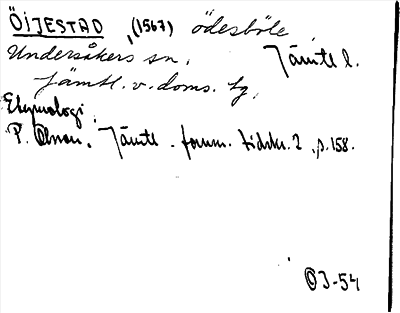 ÖIJESTAD, (1567) ödesböle
Undersåkers sn, Jämtl.
Jämtl. v. doms. tg,
Etymologi,
P. Olsson. Jämtl. forum. tidskr. 2, s. 158.
OJ-54